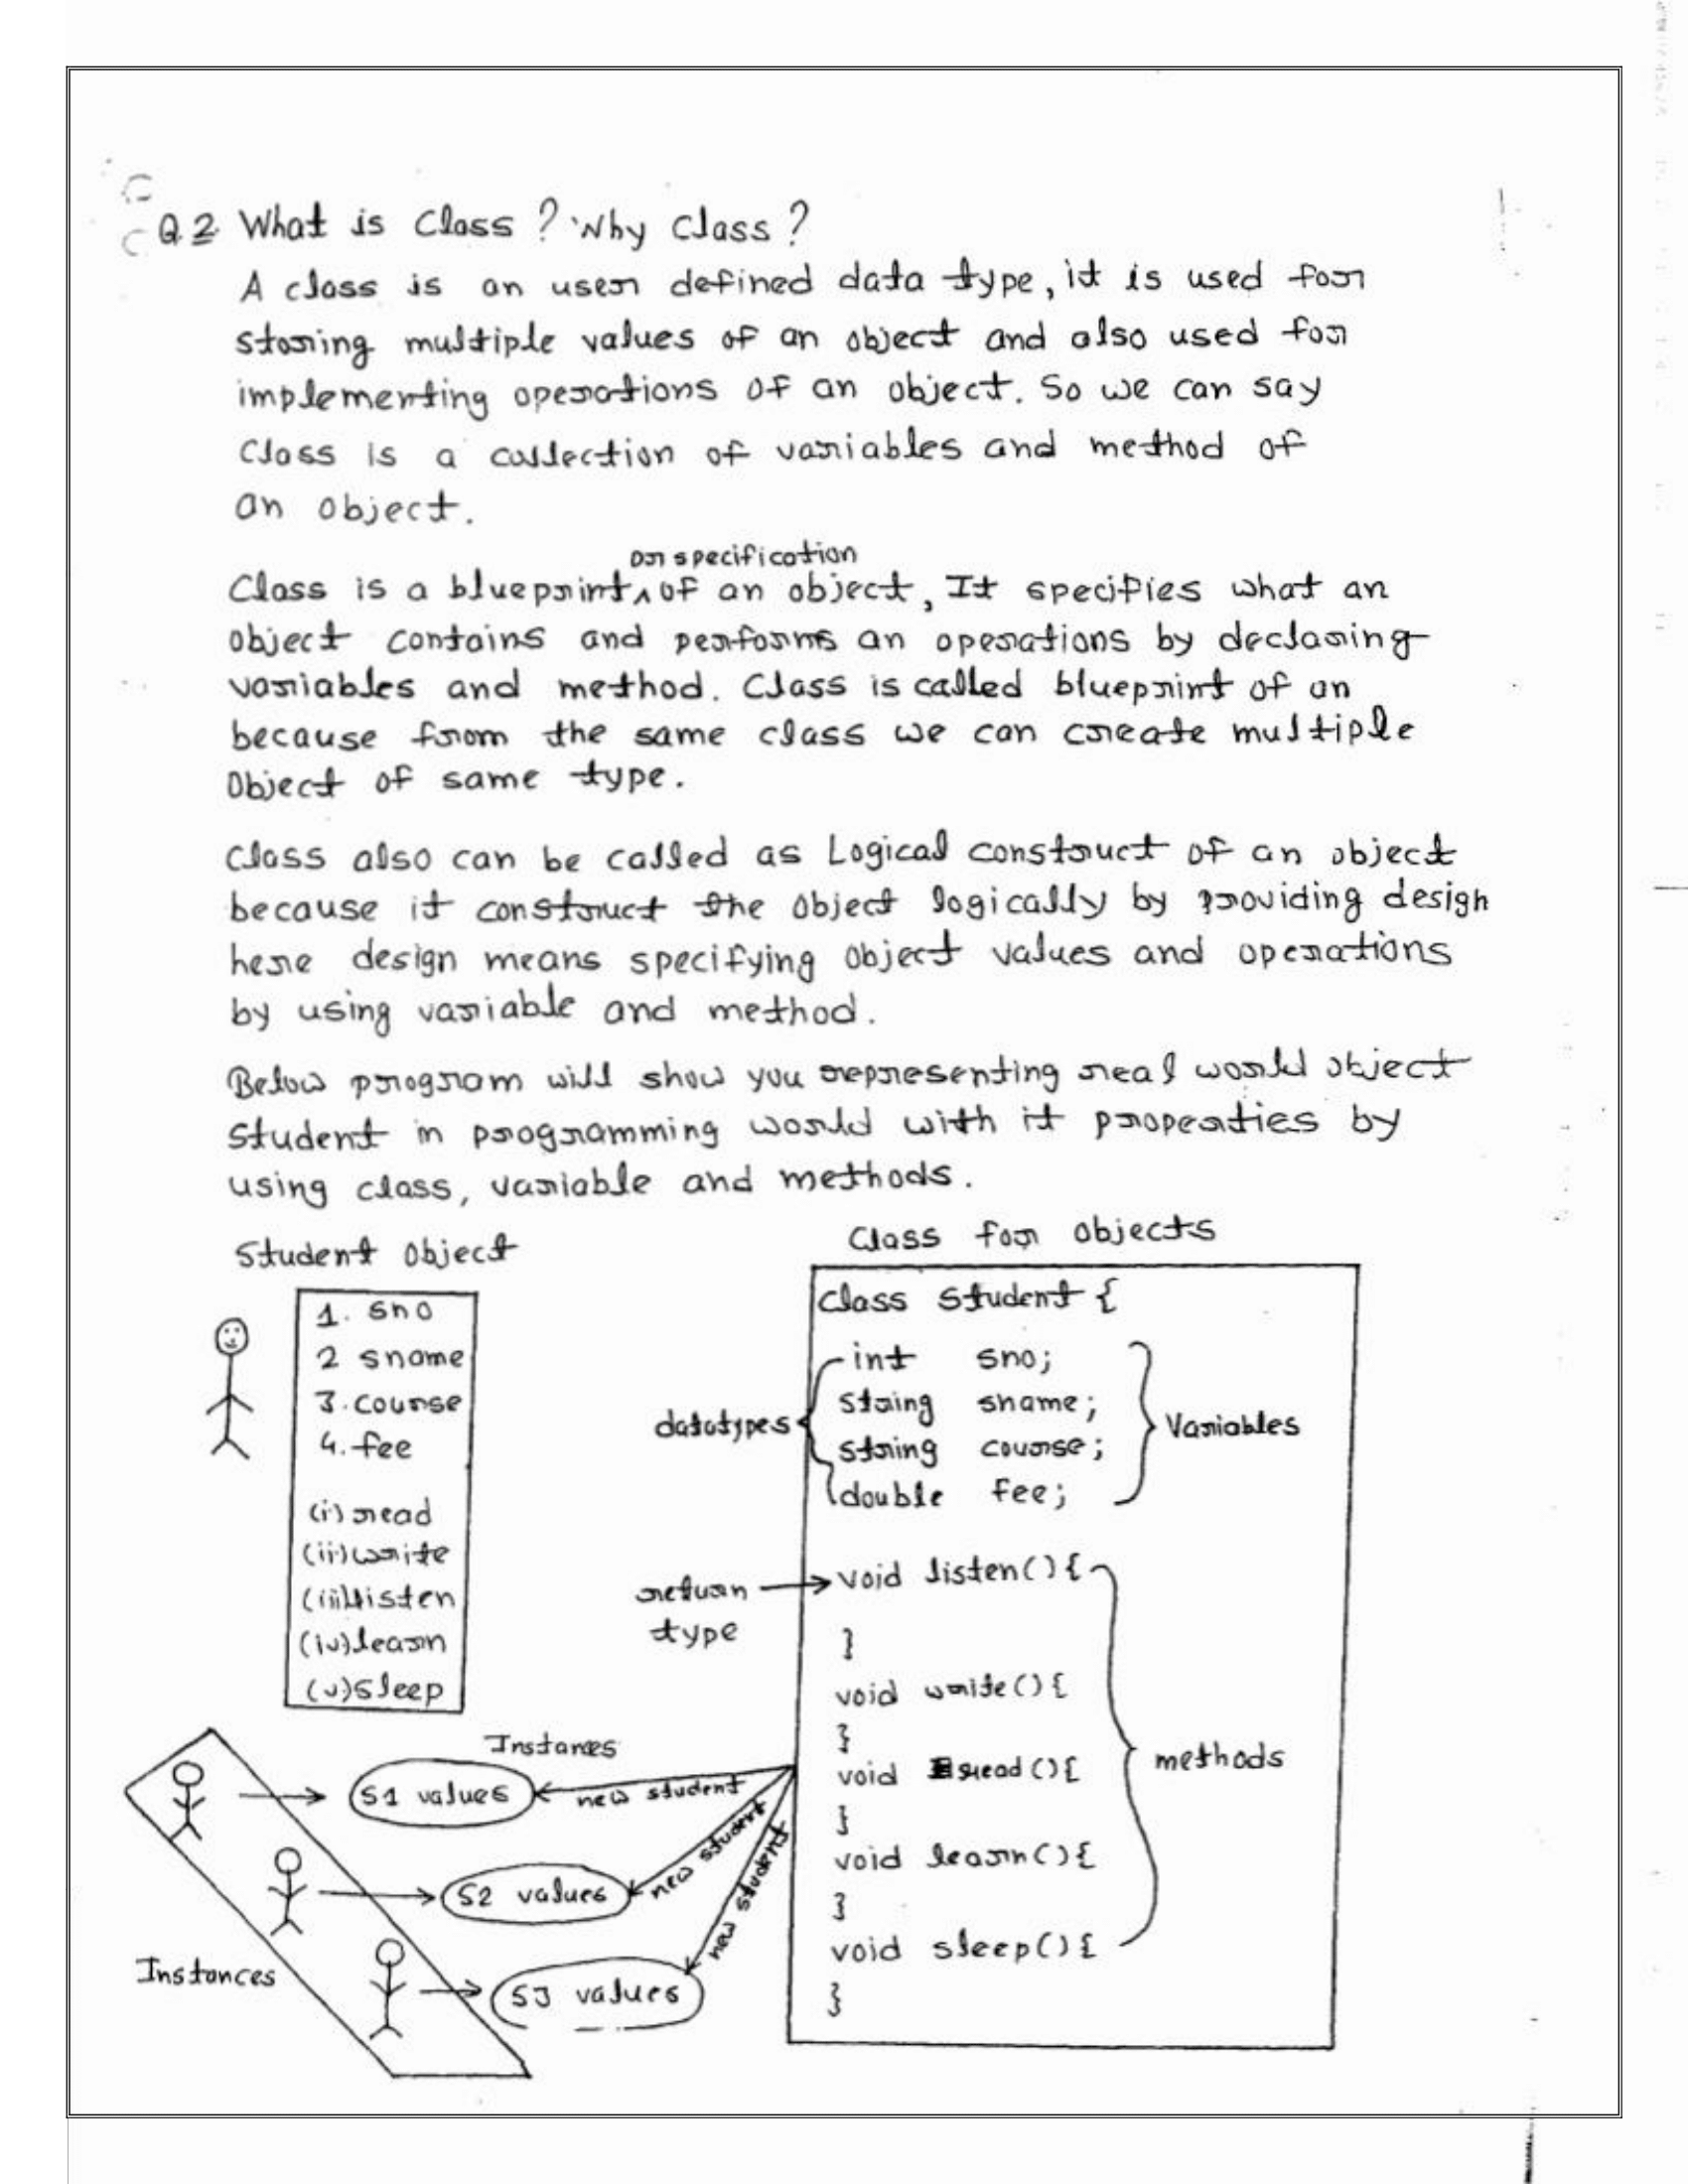 Q2 What is Class? Why Class?
A class is an user defined data type, it is used for
storing multiple values of an object and also used for
implementing operations of an object. So we can say
Class is a collection of variables and method of
an object.
or specification
Class is a blueprint ^ of an object, It specifies what an
object contains and performs an operations by declaring
variables and method. Class is called blueprint of an
because from the same class we can create multiple
Object of same type.
Class also can be called as Logical construct of an object
because it construct the object logically by providing design
here design means specifying object values and operations
by using variable and method.
Below program will show you representing real world object
student in programming world with it properties by
using class, variable and methods.
Student Object
1. sno
2 sname
3. course
4. fee
(i) read
(ii) write
(iii) listen
(iv) learn
(v) sleep
Class for objects
Class Student {
int sno;
string sname;
string course;
double fee;
datatypes
Variables
void listen() {
}
void write() {
}
void read () {
}
void learn() {
}
void sleep() {
}
return
type
methods
Instances
S1 values
new student
S2 values
new student
S3 values
new student
Instances